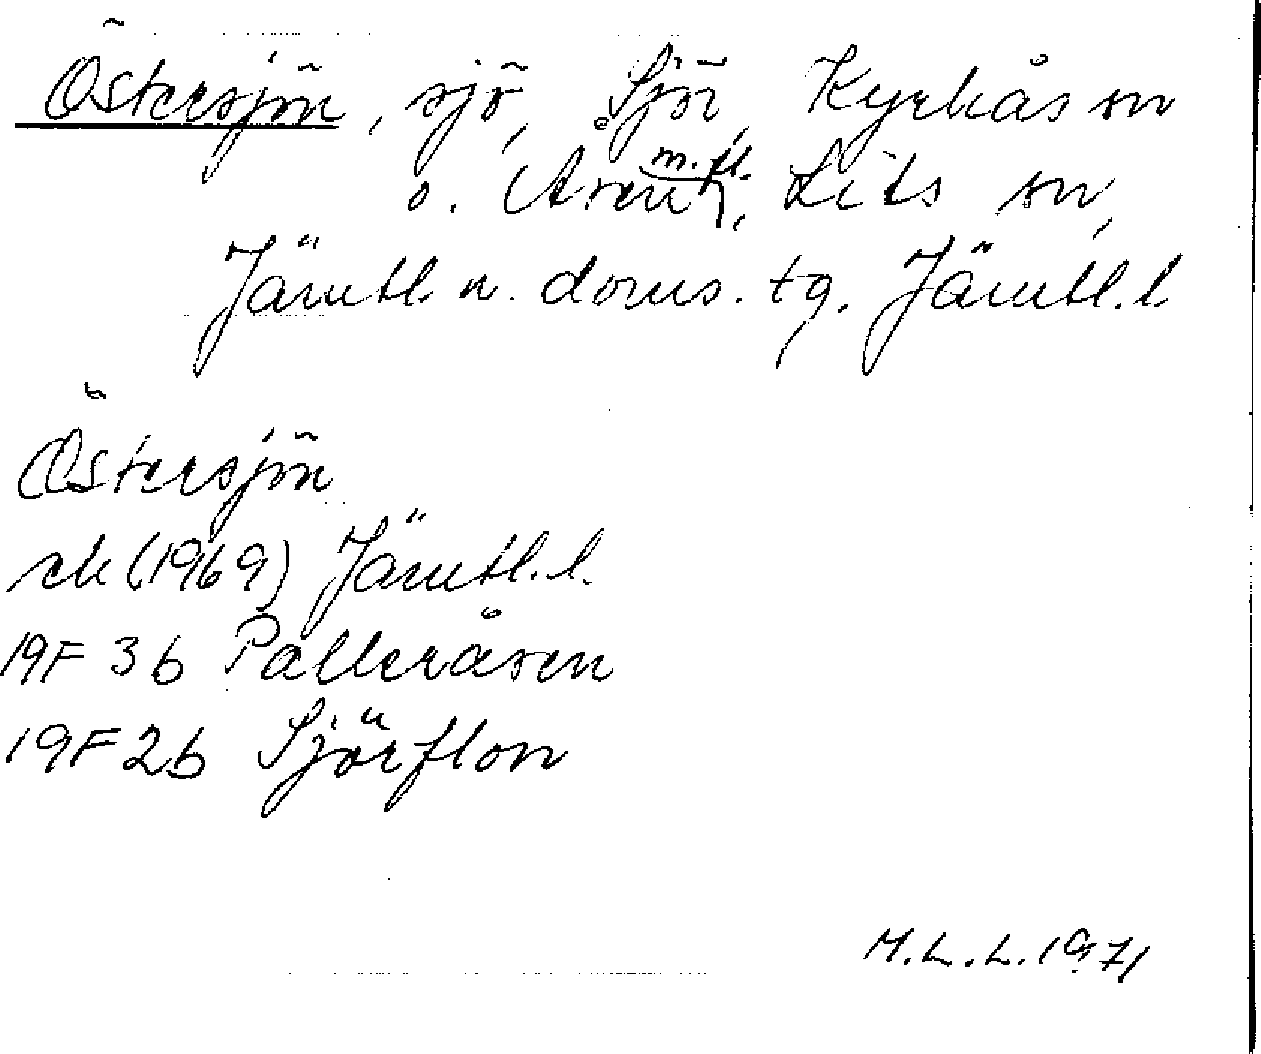 Östersjön, sjö, Sjör, Kyrkås sn
o. Åsen m.fl., Lits sn,
Jämtl. n. doms. tg. Jämtl. l
Östersjön
ek (1969) Jämtl. l.
19F 3b Pålleråsen
19F 2b Sjörflon
M.L.L. 1971